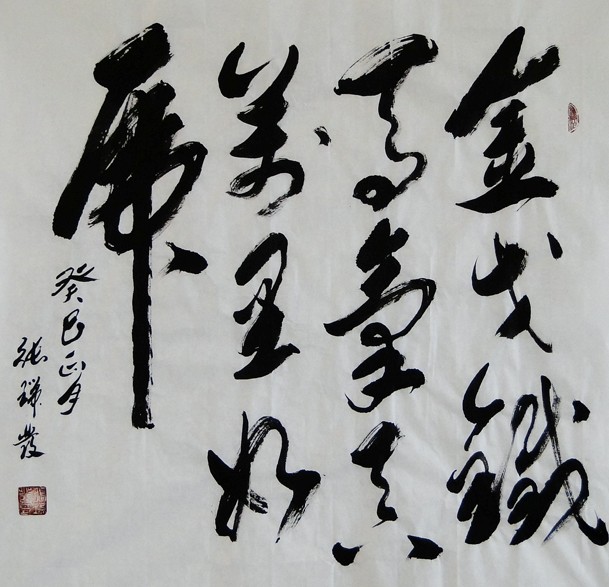 金戈鐵
馬氣吞
萬里如
虎
癸巳正月
張發